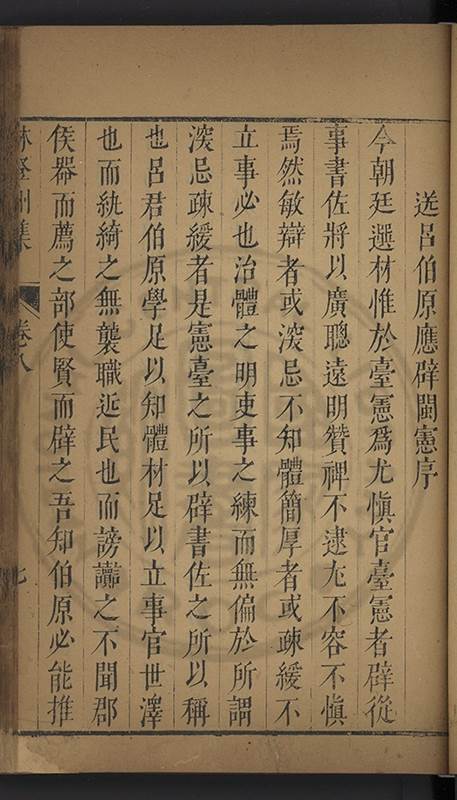 送呂伯原應辟閩憲序
今朝廷選材惟於臺憲爲尤愼官臺憲者辟從
事書佐將以廣聰遠明贊禆不逮尤不容不愼
焉然敏辯者或深忌不知體簡厚者或疎緩不
立事必也治體之明吏事之練而無偏於所謂
深忌疎緩者是憲臺之所以辟書佐之所以稱
也呂君伯原學足以知體材足以立事官世澤
也而紈綺之無襲職近民也而謗讟之不聞郡
侯器而薦之部使賢而辟之吾知伯原必能推
林登州集
卷八
七